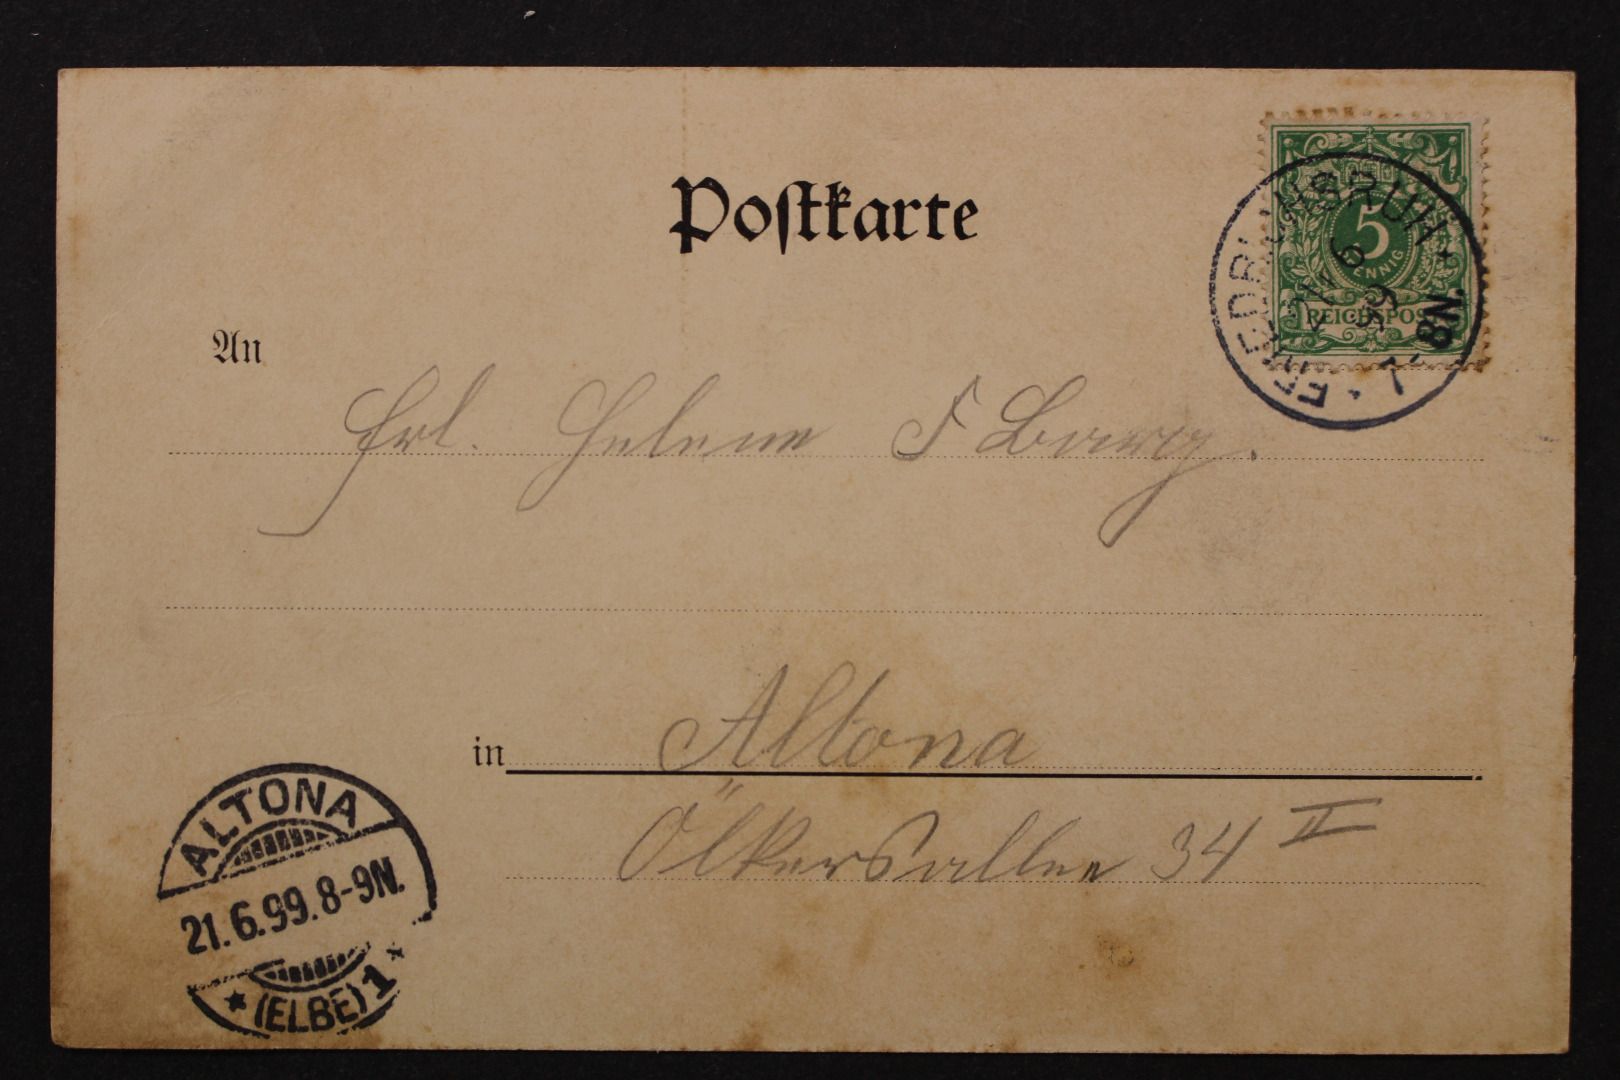 Postkarte
5
PFENNIG
REICHSPOST
FRIEDRICHSRUH
21 6
99
7-8N.
An
Frl. Helene F Barg.
in Altona
Ölkersallee 34 II
ALTONA
21.6.99.8-9N.
* (ELBE) 1 *